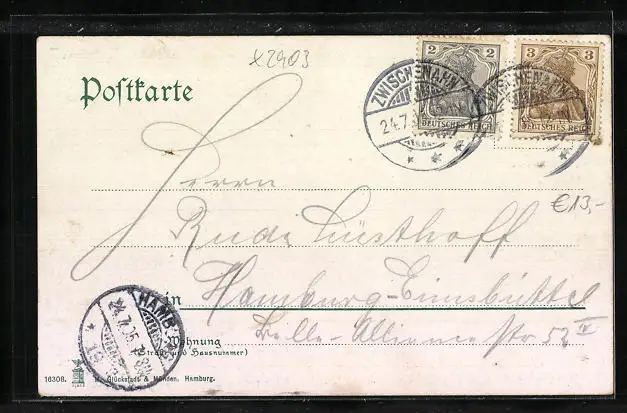 x2903
Postkarte
2 2
DEUTSCHES REICH
3 3
DEUTSCHES REICH
ZWISCHENAHN
24.7.
Herrn
€13,-
Rudi Lüsthoff
in Hamburg-Eimsbüttel
Belle-Alliance str 52 IV
Wohnung
(Straße und Hausnummer)
HAMB
24.7.05
16308.
Glückstadt & Münden, Hamburg.